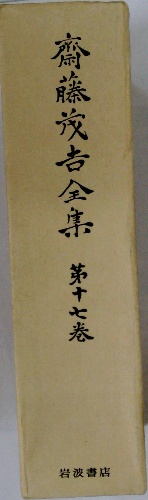 齋藤茂吉全集
第十七巻
岩波書店